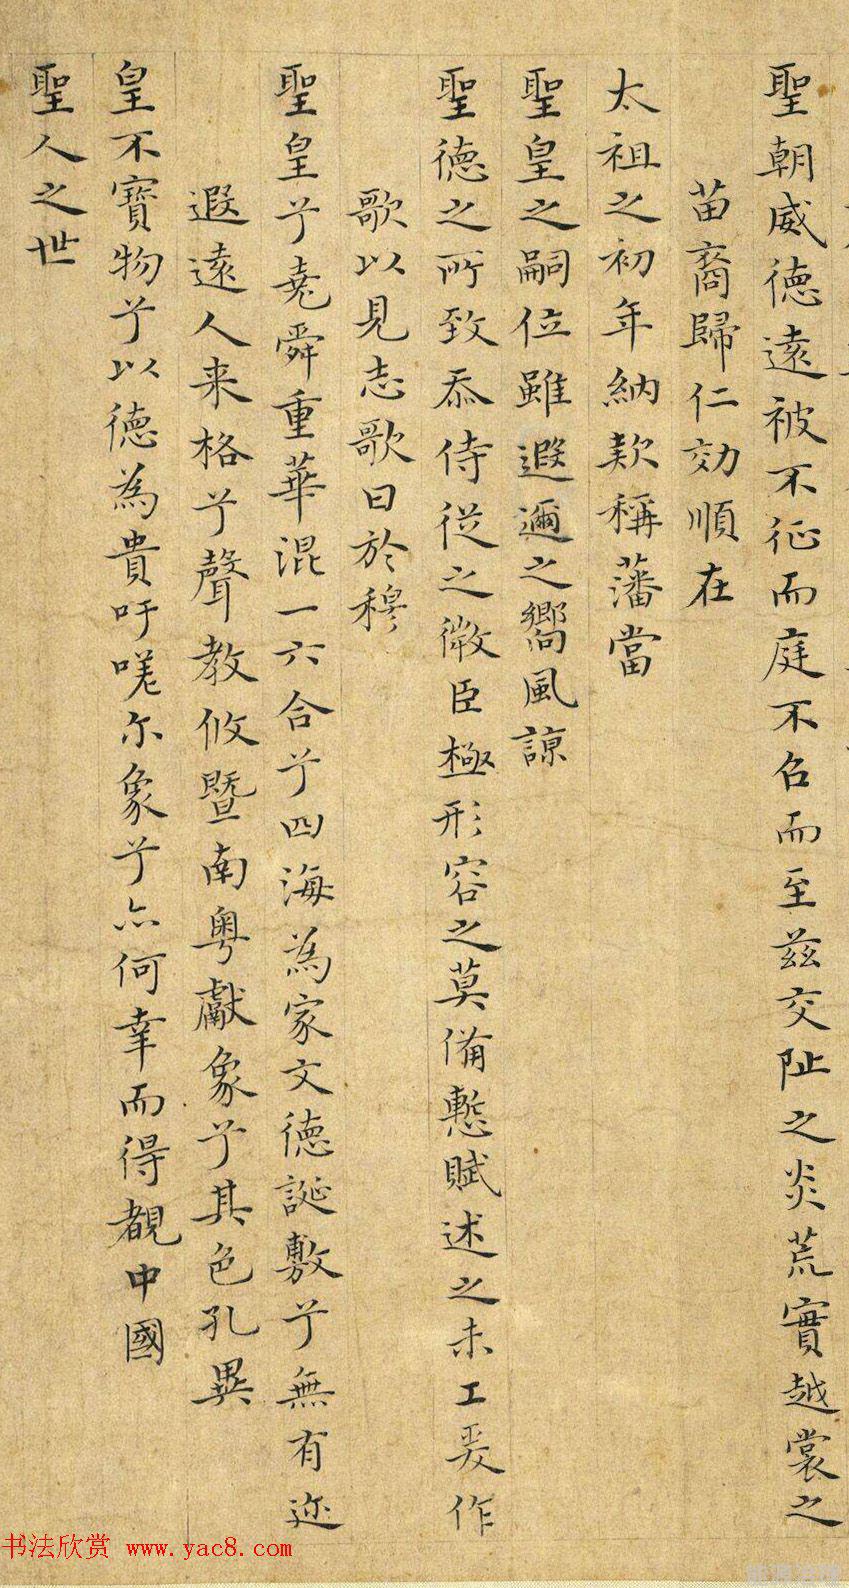 聖朝威德遠被不征而庭不召而至茲交阯之炎荒實越裳之
苗裔歸仁効順在
太祖之初年納款稱藩當
聖皇之嗣位雖遐邇之嚮風諒
聖德之所致忝侍從之微臣極形容之莫備慙賦述之未工爰作
歌以見志歌曰於穆
聖皇兮堯舜重華混一六合兮四海為家文德誕敷兮無有迩
遐遠人来格兮聲教攸暨南粵獻象兮其色孔異
皇不寶物兮以德為貴吁嗟尔象兮亦何幸而得覩中國
聖人之世
书法欣赏 www.yac8.com